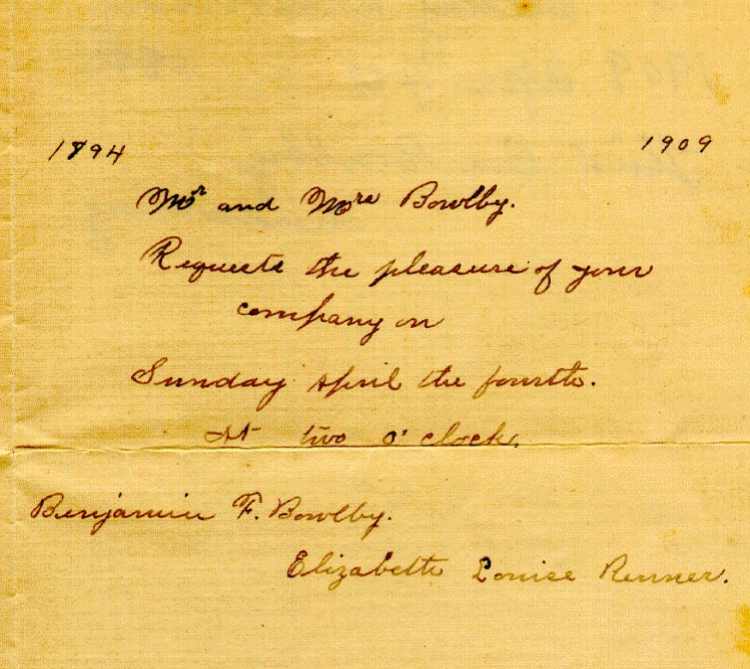 1894 1909
Mr and Mrs Bowlby.
Requests the pleasure of your
company on
Sunday April the fourth.
At two o'clock.
Benjamin F. Bowlby.
Elizabeth Louise Renner.